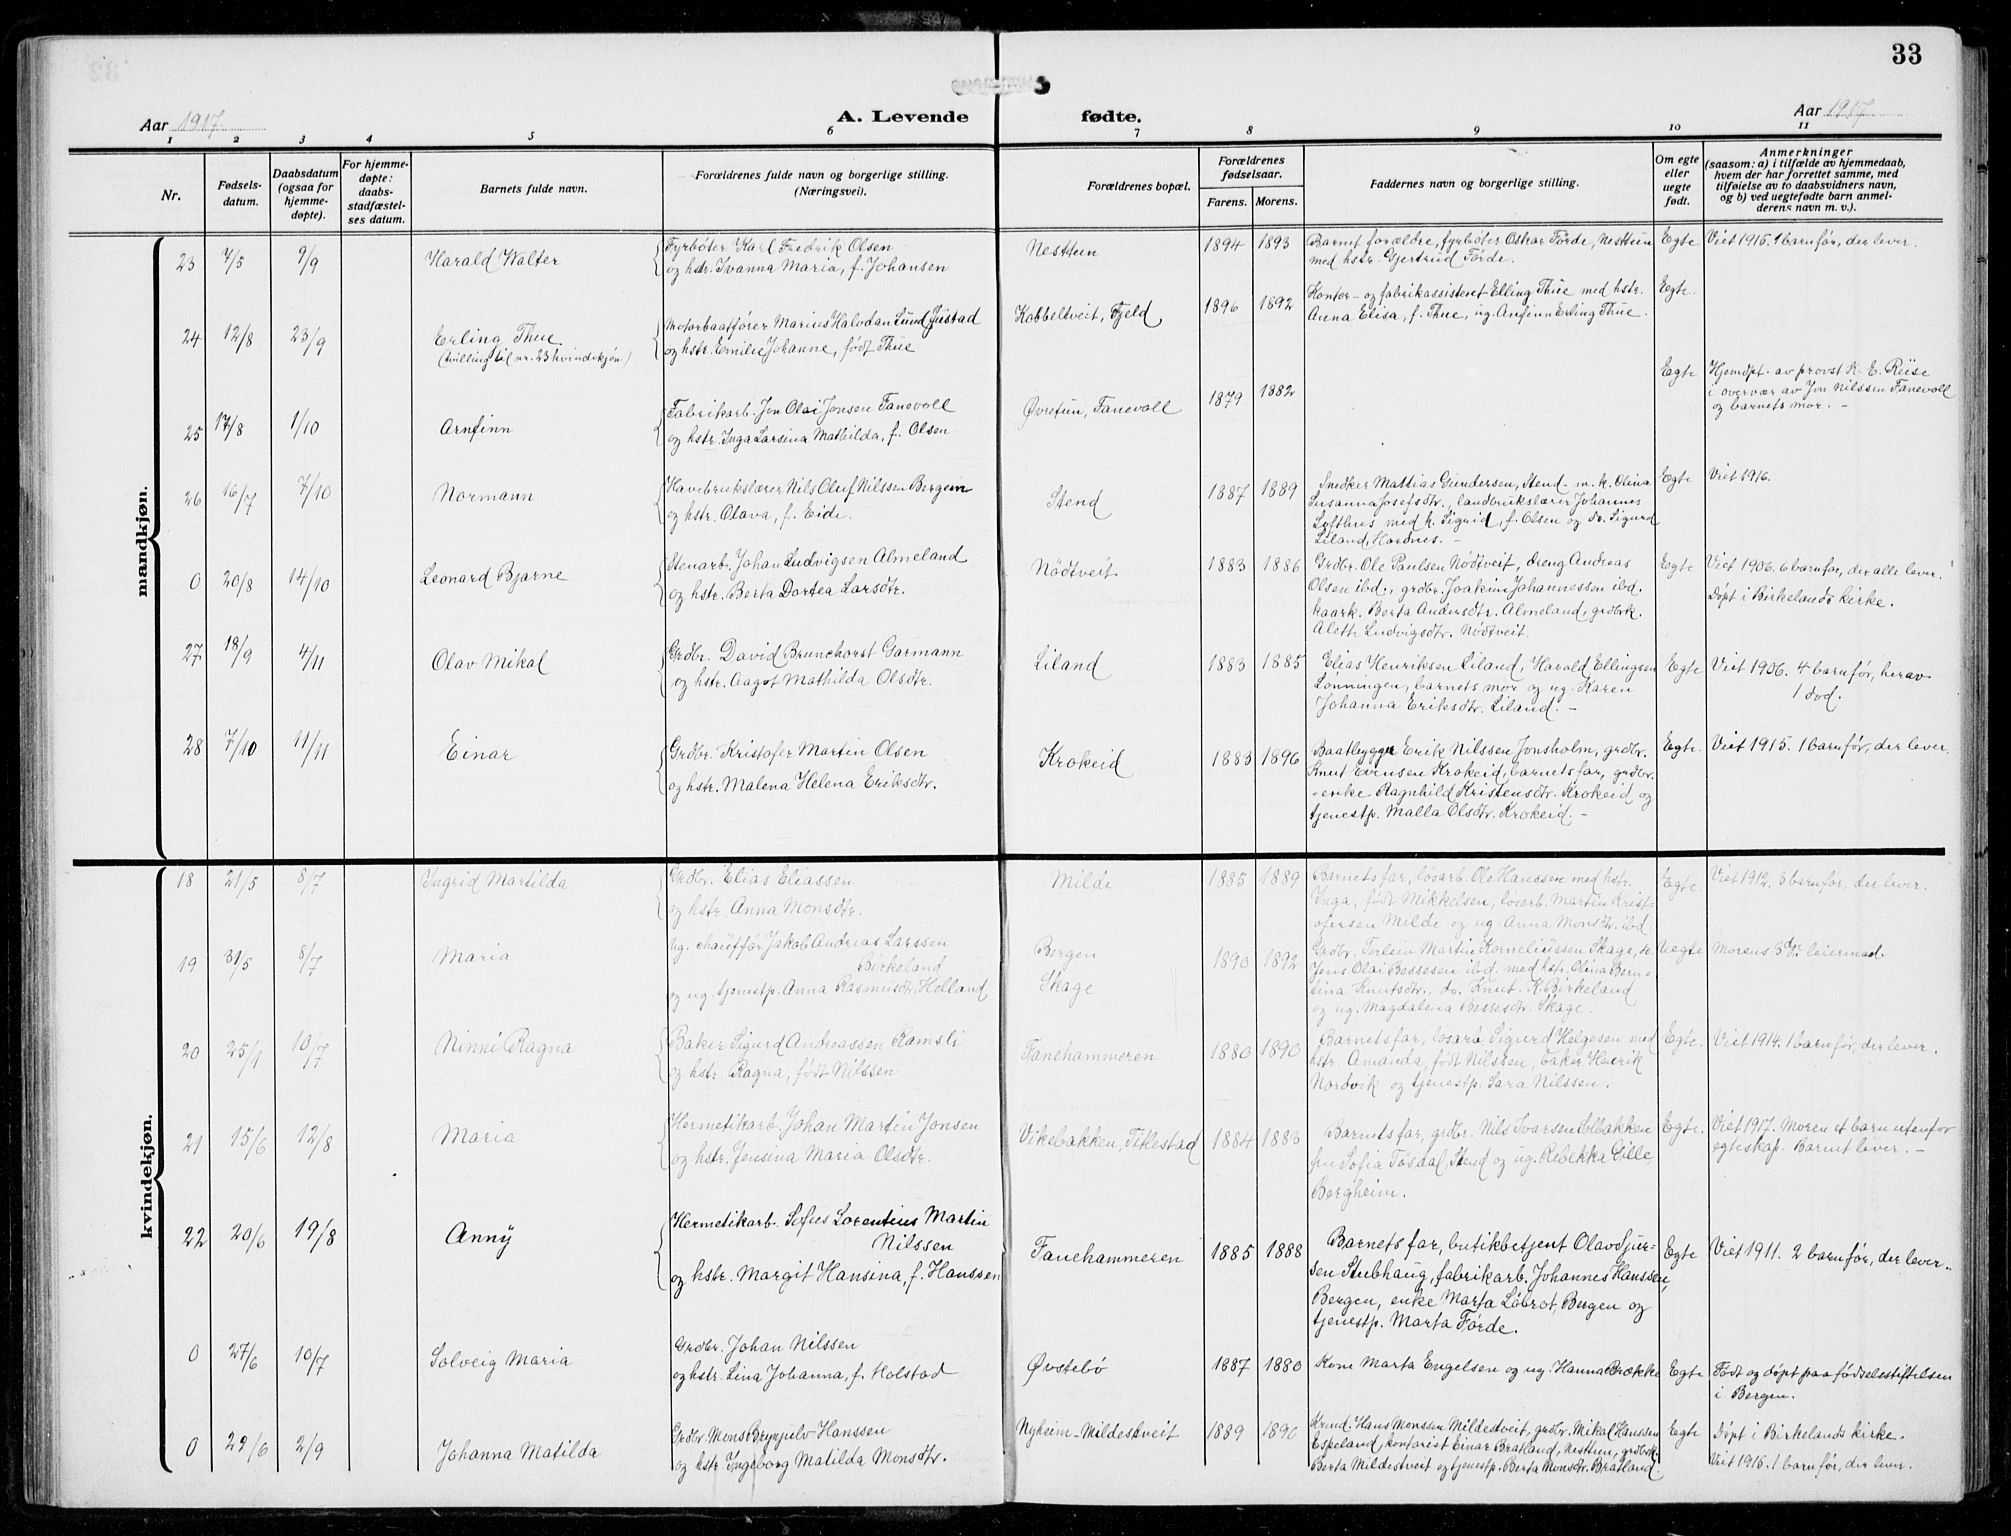 33
Aar 1917
A. Levende fødte.
Aar 1917
1 2 3 4 5 6 7 8 9 10 11
Nr.
Fødsels-
datum.
Daabsdatum
(ogsaa for
hjemme-
døpte).
For hjemme-
døpte:
daabs-
stadfæstel-
ses datum.
Barnets fulde navn.
Forældrenes fulde navn og borgerlige stilling.
(Næringsvei).
Forældrenes bopæl.
Forældrenes
fødselsaar.
Farens. Morens.
Faddernes navn og borgerlige stilling.
Om egte
eller
uegte
født.
Anmerkninger
(saasom: a) i tilfælde av hjemmedaab,
hvem der har forrettet samme, med
tilføielse av to daabsvidners navn,
og b) ved uegtefødte barn anmel-
derens navn m. v.).
mandkjøn.
23 7/5 9/9 Harald Walter
Fyrbøter Karl Fredrik Olsen
og hstr. Ivanna Maria, f. Johansen
Nesttun 1894 1893
Barnet forældre, fyrbøter Oskar Førde, Nesttun
med hstr. Gjertrud Førde.
Egte Viet 1915. 1 barn før, der lever.
24 12/8 23/9 Erling Thue
(tvilling til nr. 23 kvindekjøn)
Motorbaatfører Marius Halvdan Lund Justad
og hstr. Emilie Johanne, født Thue
Kobbeltveit, Fjeld 1896 1892
Kontor- og fabrikassistent Elling Thue med hstr.
Anna Elisa, f. Thue, ug. Anfinn Erling Thue.
Egte.
25 17/8 1/10 Arnfinn
Fabrikarb. Jon Olai Jonsen Fanevoll
og hstr. Inga Larsina Mathilda, f. Olsen
Øvretun, Fanevoll 1879 1882
Egte Hjemdpt. av provst K. E. Riise
i overvær av Jon Nilssen Fanevoll
og barnets mor. -
26 16/7 7/10 Normann
Havebrukslærer Nils Oluf Nilssen Bergem
og hstr. Olava, f. Eide.
Stend 1887 1889
Snedker Mattias Gundersen, Stend m. h. Olina
Susanna Josefsdtr., landbrukslærer Johannes
Lofthus med h. Sigrid, f. Olsen og do. Sigurd
Liland, Hordnes. -
Egte Viet 1916.
0 20/8 14/10 Leonard Bjarne
Stenarb. Johan Ludvigsen Almeland
og hstr. Berta Dortea Larsdtr.
Nödtveit 1883 1886
Grdbr. Ole Paulsen Nödtveit, dreng Andreas
Olsen ibd., grdbr. Joakim Johannessen ibd.
kaark. Berta Andersdtr. Almeland, grdbrk.
Alette Ludvigsdtr. Nödtveit.
Egte Viet 1906. 6 barn før, der alle lever.
Døpt i Birkelands kirke.
27 18/9 4/11 Olav Mikal
Grdbr. David Brunchorst Garmann
og hstr. Aagot Mathilda Olsdtr.
Liland 1883 1885
Elias Henriksen Liland, Harald Ellingsen
Lønningen, barnets mor og ug. Karen
Johanna Eriksdtr. Liland. -
Egte Viet 1906. 4 barn før, herav
1 død.
28 7/10 11/11 Einar
Grdbr. Kristofer Martin Olsen
og hstr. Malena Helena Eriksdtr.
Krokeid 1883 1896
Baatbygger Erik Nilssen Jonsholm, grdbr.
Knut Evensen Krokeid, barnets far, grdbr.
-enke Ragnhild Kristensdtr. Krokeid og
tjenestp. Malla Olsdtr. Krokeid. -
Egte. Viet 1915. 1 barn før, der lever.
kvindekjøn.
18 21/5 8/7 Ingrid Martilda
Grdbr. Elias Eliassen
og hstr. Anna Monsdtr.
Milde 1885 1889
Barnets far, løsarb. Ole Hanssen med hstr.
Inga, født Mikkelsen, løsarb. Martin Krist-
ofersen Milde og ug. Anna Monsdtr. ibd.
Egte. Viet 1912. 3 barn før, der lever.
19 31/5 8/7 Maria
Ug. chauffør Jakob Andreas Larssen
Birkeland
og ug. tjenestp. Anna Rasmusdtr. Helland
Bergen
Skage
1890 1892
Grdbr. Torleiv Martin Korneliussen Skage, do.
Jens Olai Bessesen ibd. med hstr. Olina Bern-
tina Knutsdtr., do. Knut K. Birkeland
og ug. Magdalena Bessesdtr. Skage.
Uegte Morens 3dje leiermaal
20 25/1 10/7 Ninni Ragna
Baker Sigurd Andreassen Ramsli
og hstr. Ragna, født Nilssen
Fanehammeren 1880 1890
Barnets far, løsarb. Sigurd Helgesen med
hstr. Amanda, født Nilssen, baker Henrik
Nordvik og tjenestp. Sara Nilssen.
Egte. Viet 1914. 1 barn før, der lever.
21 15/6 12/8 Maria
Hermetikarb. Johan Martin Jonsen
og hstr. Jensina Maria Olsdtr.
Vikebakken, Titlestad 1884 1883
Barnets far, grdbr. Nils Ivarsen Olbakken
fru Sofia Tøsdal, Stend og ug. Rebekka Gille,
Borgheim.
Egte. Viet 1917. Moren et barn utenfor
egteskap. Barnet lever. -
22 20/6 19/8 Anny
Hermetikarb. Sofus Lorentius Martin
Nilssen
og hstr. Margit Hansina, f. Hanssen
Fanehammeren 1885 1888
Barnets far, butikbetjent Olav Sjur-
sen Stubhaug, fabrikarb. Johannes Hanssen,
Bergen, enke Marta Löbrot, Bergen og
tjenestp. Marta Førde.
Egte Viet 1911. 2 barn før, der lever.
0 27/6 10/7 Solveig Maria
Grdbr. Johan Nilssen
og hstr. Lina Johanna, f. Holstad
Øvstebö 1887 1880
Kone Marta Engelsen og ug. Hanna Brække
Egte Født og døpt paa fødselsstiftelsen
i Bergen.
0 29/6 2/9 Johanna Matilda
Grdbr. Mons Brynjulv Hanssen
og hstr. Ingeborg Matilda Monsdtr.
Nyheim-Mildestveit 1889 1890
Hans Monssen Mildestveit, grdbr. Mikal Hanssen
Espeland, kontorist Einar Bratland, Nesttun, grdbrk.
Berta Mildestveit og tjenestp. Berta Monsdtr. Bratland.
Egte Døpt i Birkelands kirke.
Viet 1916. 1 barn før, der lever.